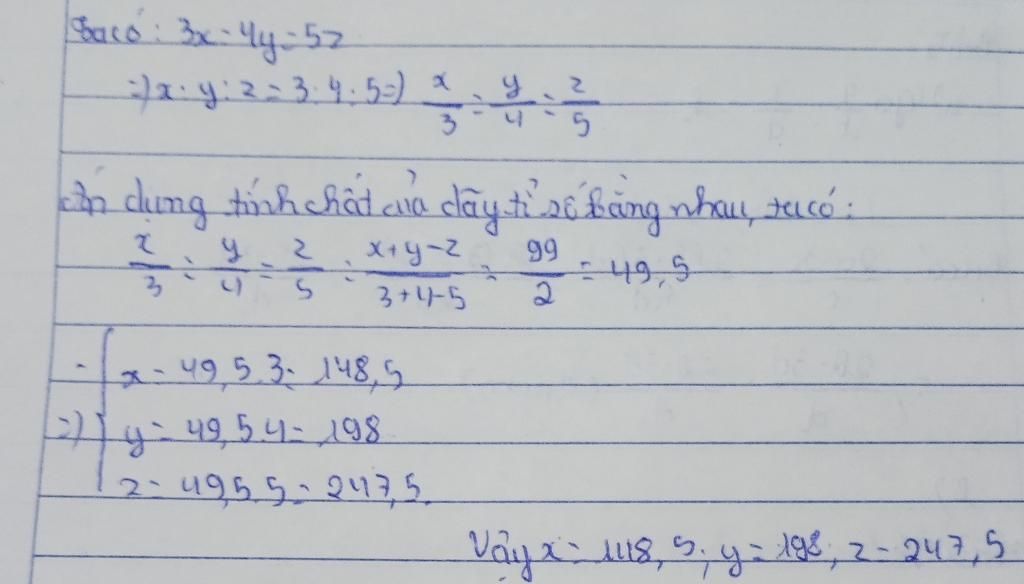 Ta có: 3x=4y=5z
=) x:y:z=3:4:5=) x/3 = y/4 = z/5
dụng tính chất của dãy tỉ số bằng nhau, ta có:
x/3 = y/4 = z/5 = x+y-z/3+4-5 = 99/2 = 49,5
x= 49,5.3= 148,5
=) y= 49,5.4= 198
z= 49,5.5= 247,5.
Vậy x= 148,5; y= 198; z= 247,5